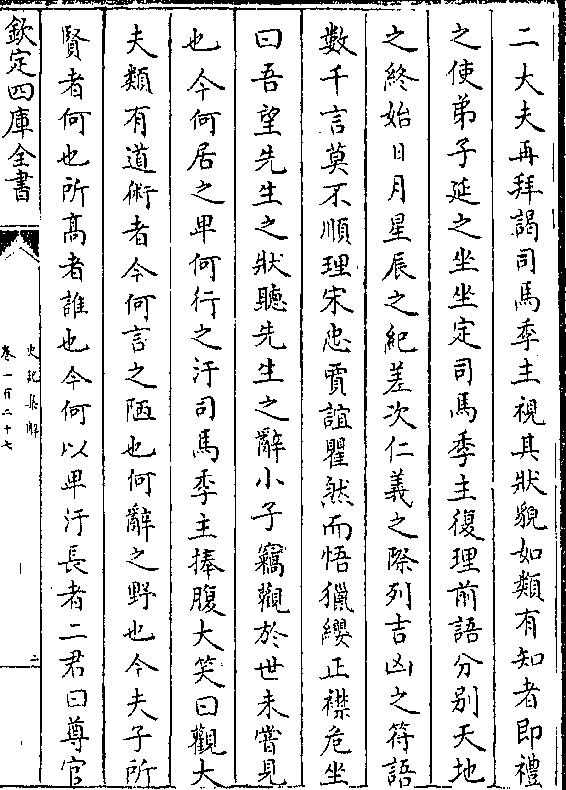 二大夫再拜謁司馬季主視其狀貌如類有知者即禮
之使弟子延之坐坐定司馬季主復理前語分别天地
之終始日月星辰之紀差次仁義之際列吉凶之符語
數千言莫不順理宋忠賈誼瞿然而悟獵纓正襟危坐
曰吾望先生之狀聽先生之辭小子竊觀於世未嘗見
也今何居之卑何行之汙司馬季主捧腹大笑曰觀大
夫類有道術者今何言之陋也何辭之野也今夫子所
賢者何也所髙者誰也今何以卑汙長者二君曰尊官
欽定四庫全書
史記集解
卷一百二十七
二